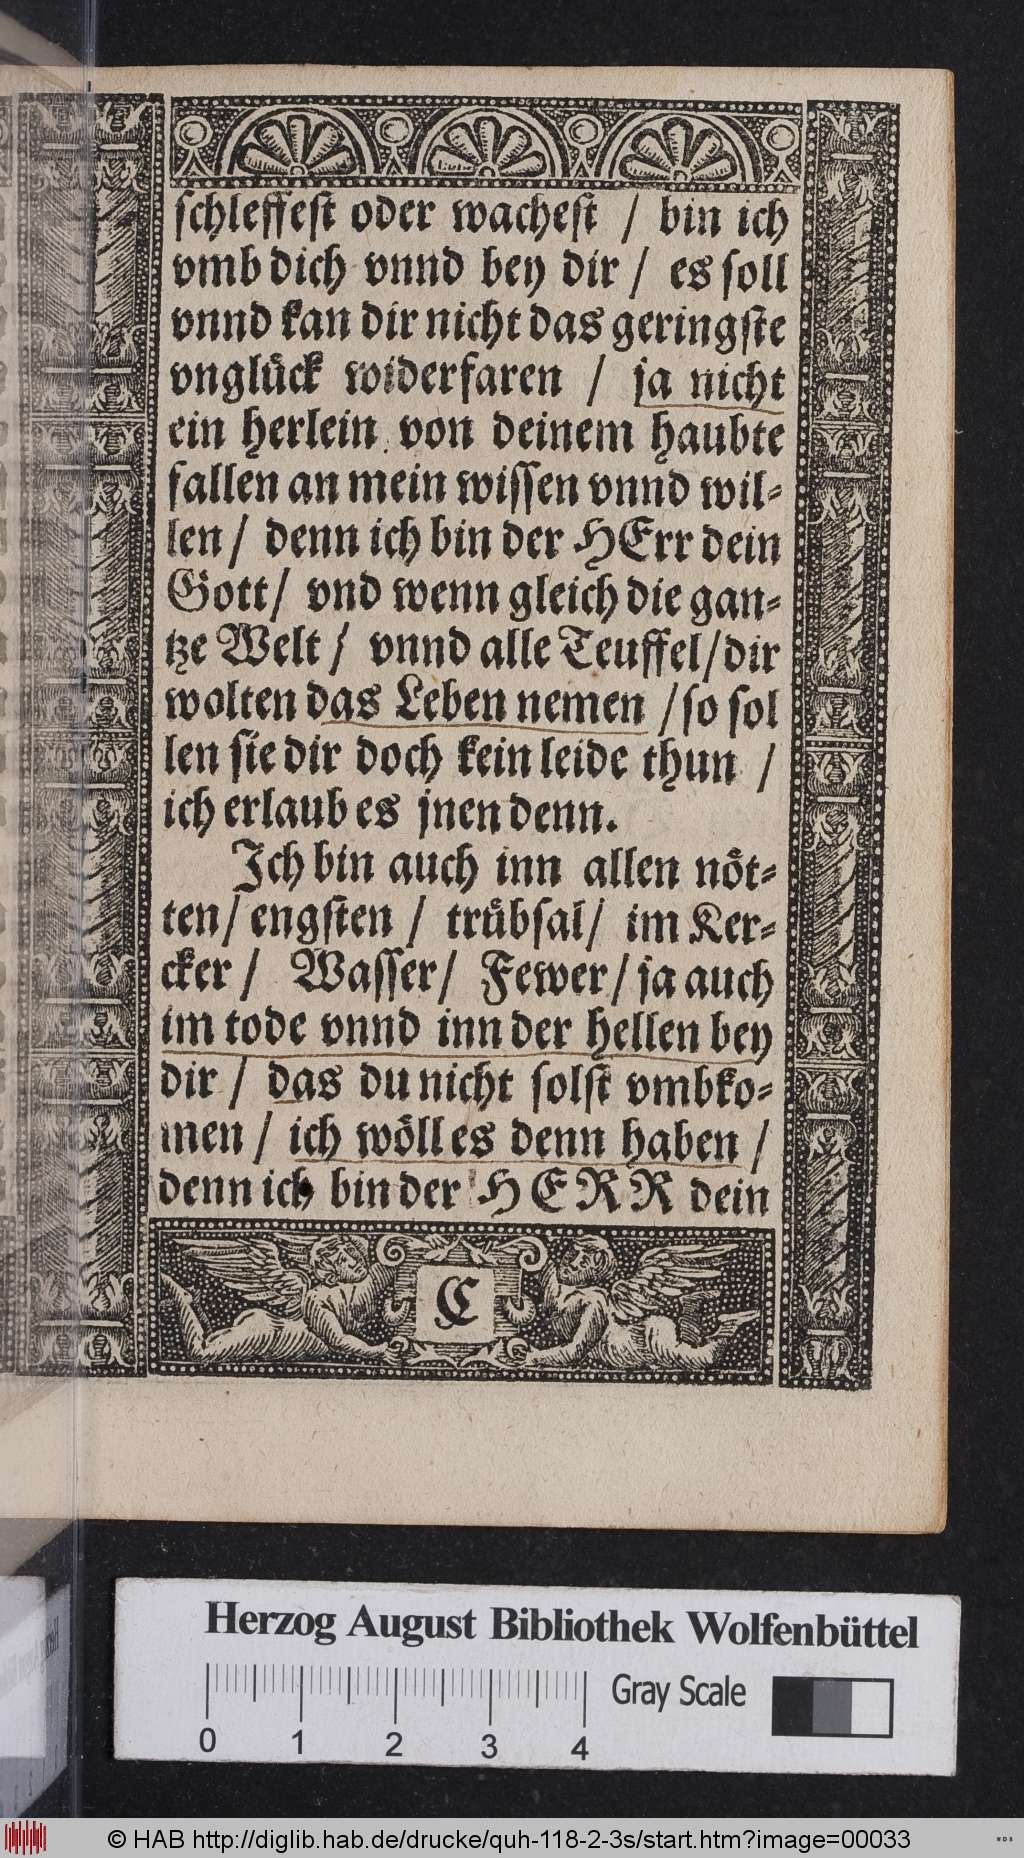 schleffest oder wachest / bin ich
vmb dich vnnd bey dir / es soll
vnnd kan dir nicht das geringste
vnglück widerfaren / ja nicht
ein herlein von deinem haubte
fallen an mein wissen vnnd wil⸗
len / denn ich bin der HErr dein
Gott / vnd wenn gleich die gan⸗
tze Welt / vnnd alle Teuffel / dir
wolten das Leben nemen / so sol
len sie dir doch kein leide thun /
ich erlaub es jnen denn.
Ich bin auch inn allen nöt⸗
ten / engsten / trübsal / im Ker⸗
cker / Wasser / Fewer / ja auch
im tode vnnd inn der hellen bey
dir / das du nicht solst vmbko⸗
men / ich wöll es denn haben /
denn ich bin der HERR dein
C
Herzog August Bibliothek Wolfenbüttel
Gray Scale
0 1 2 3 4
© HAB http://diglib.hab.de/drucke/quh-118-2-3s/start.htm?image=00033